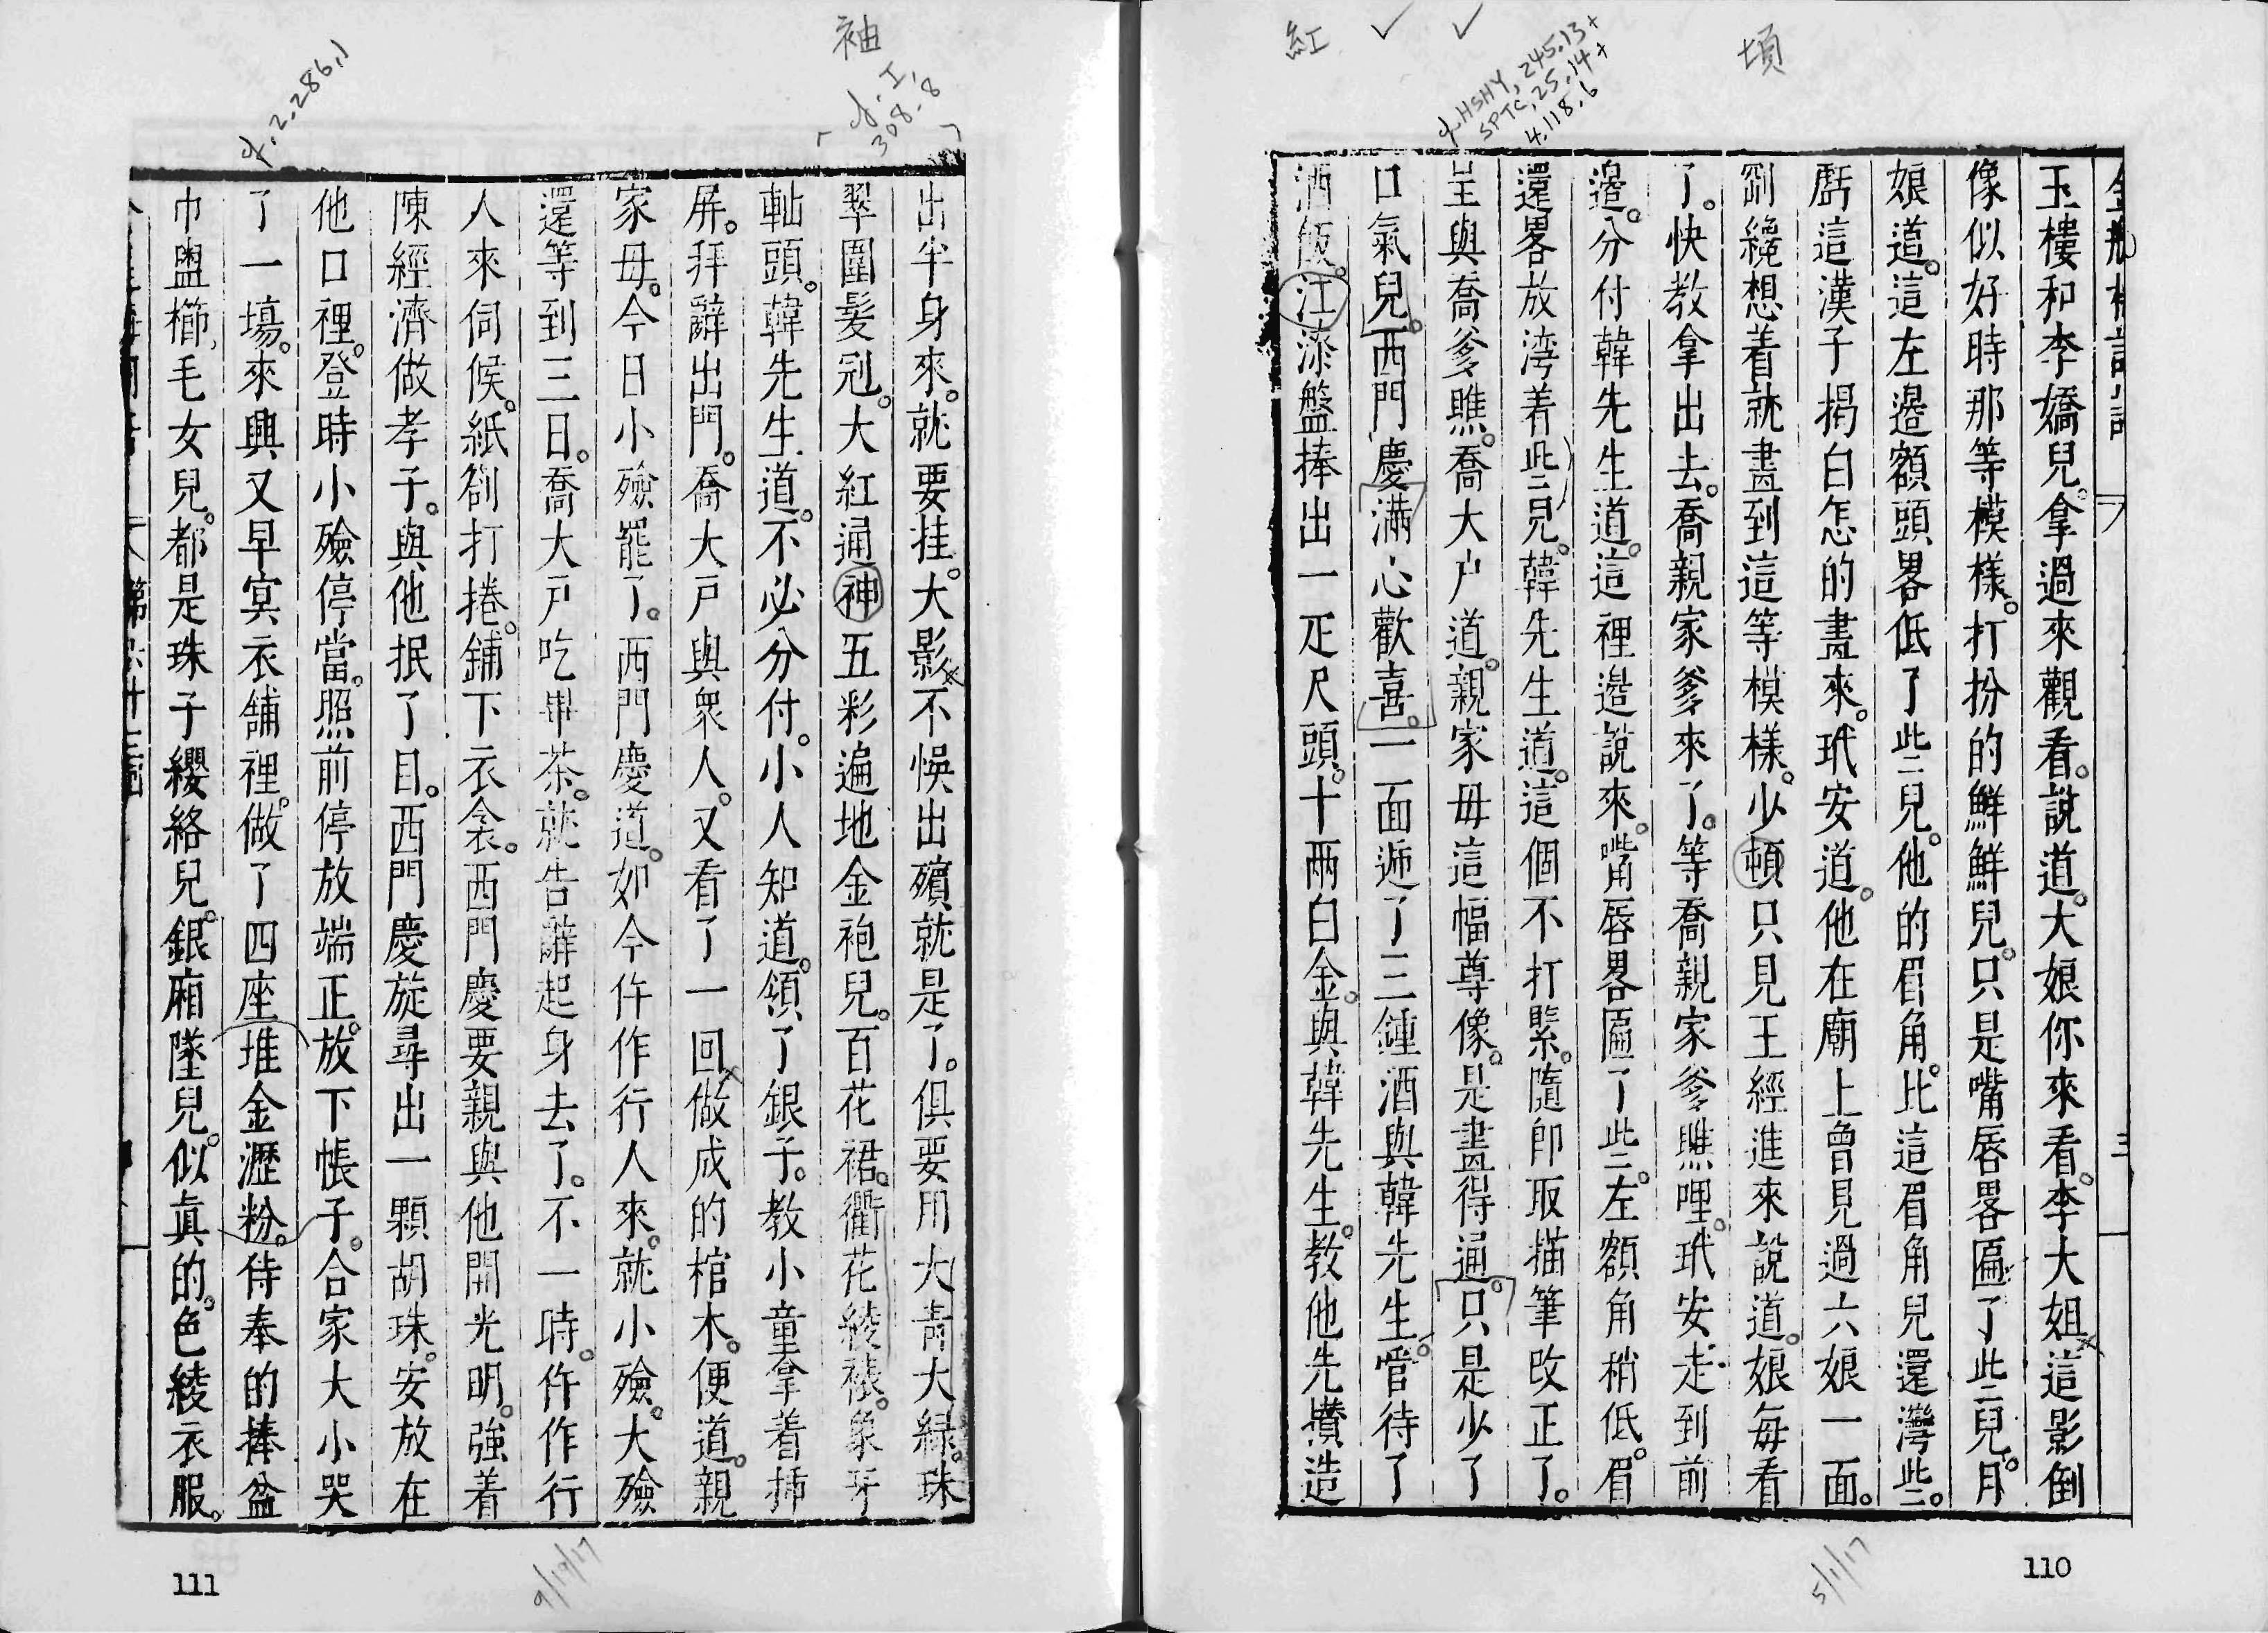 紅
頃
✓ ✓
cf. HSHY, 245.13+
SPTC, 25.14+
4.118.6
玉樓和李嬌兒。拿過來觀看。說道。大娘你來看。李大姐這影倒
像似好時那等模樣。打扮的鮮鮮兒。只是嘴唇畧匾了些兒。月
娘道。這左邊額頭畧低了些兒。他的眉角。比這眉角兒還灣些。
虧這漢子揭白怎的畫來。玳安道。他在廟上曾見過六娘一面。
剛纔想着就畫到這等模樣。少頓只見王經進來說道。娘每看
了。快教拿出去。喬親家爹來了。等喬親家爹瞧哩。玳安走到前
邊。分付韓先生道。這裡邊說來。嘴唇畧匾了些。左額角稍低。眉
還畧放灣着些兒。韓先生道。這個不打緊。隨卽取描筆改正了。
呈與喬爹瞧。喬大户道。親家毋這幅尊像。是畫得通。只是少了
口氣兒。西門慶滿心歡喜。一面遞了三鍾酒與韓先生。管待了
酒飯。江漆盤捧出一疋尺頭。十兩白金。與韓先生。教他先攢造
110
5/1/17
袖
cf. I, 308.8
cf. 2.286.1
出半身來。就要挂。大影不悞出殯就是了。俱要用大靑大緑。珠
翠圍髮冠。大紅通神五彩遍地金袍兒。百花裙。衢花綾裱。象牙
軸頭。韓先生道。不必分付。小人知道。領了銀子。教小童拿着插
屏。拜辭出門。喬大戸與衆人。又看了一回做成的棺木。便道。親
家毋。今日小殮罷了。西門慶道。如今仵作行人來。就小殮。大殮
還等到三日。喬大戸吃畢茶。就告辭起身去了。不一時。仵作行
人來伺候。紙劄打捲。鋪下衣衾。西門慶要親與他開光明。強着
陳經濟做孝子。與他抿了目。西門慶旋尋出一顆胡珠。安放在
他口裡。登時小殮停當。照前停放端正。放下帳子。合家大小哭
了一塲。來興又早冥衣舖裡。做了四座堆金瀝粉。侍奉的捧盆
巾盥櫛毛女兒。都是珠子纓絡兒。銀廂墜兒。似眞的。色綾衣服。
111
9/19/17